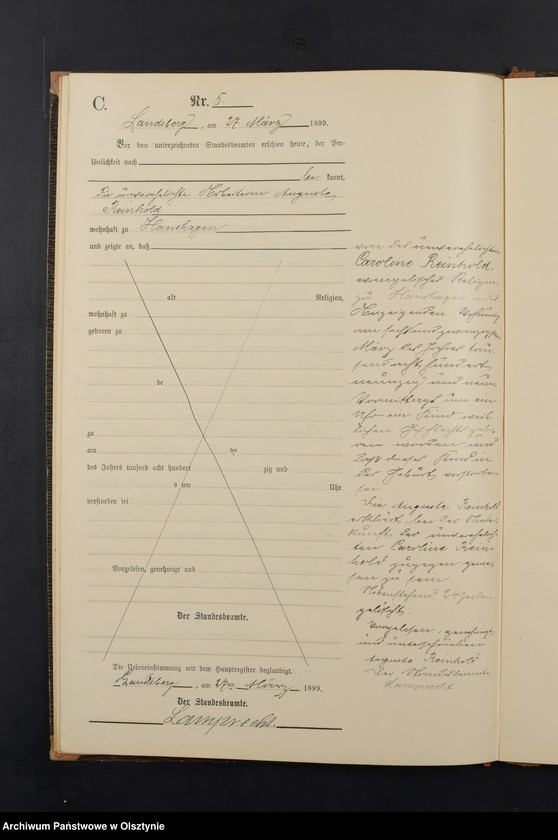 C.
Nr. 5
Landsberg, am 27 März 1899.
Vor dem unterzeichneten Standesbeamten erschien heute, der Per-
sönlichkeit nach
be kannt,
die unverehelichte Arbeiterin Auguste
Reinhold
wohnhaft zu Hanshagen
und zeigte an, daß
alt Religion,
wohnhaft zu
geboren zu
be
zu
am ten
des Jahres tausend acht hundert zig und
s um Uhr
verstorben sei
Vorgelesen, genehmigt und
Der Standesbeamte.
Die Uebereinstimmung mit dem Hauptregister beglaubigt.
Landsberg, am 27ten März 1899.
Der Standesbeamte.
Lamprecht.
von der unverehelichten
Caroline Reinhold,
evangelischer Religion
zu Hanshagen in der
Anzeigenden Wohnung
am sechsundzwanzigsten
März des Jahres tau-
send acht hundert
neunzig und neun
Vormittags um ein
Uhr ein Kind weib-
lichen Geschlechts gebo-
ren worden und
daß dieses Kind in
der Geburt verstorben
sei
Die Auguste Reinhold
erklärt, bei der Nieder-
kunft der unverehelich-
ten Caroline Rein-
hold zugegen gewe-
sen zu sein
Nebenstehend 24 Zeilen
gelöscht.
Vorgelesen, genehmigt
und unterschrieben
Auguste Reinhold
Der Standesbeamte
Lamprecht
Archiwum Państwowe w Olsztynie